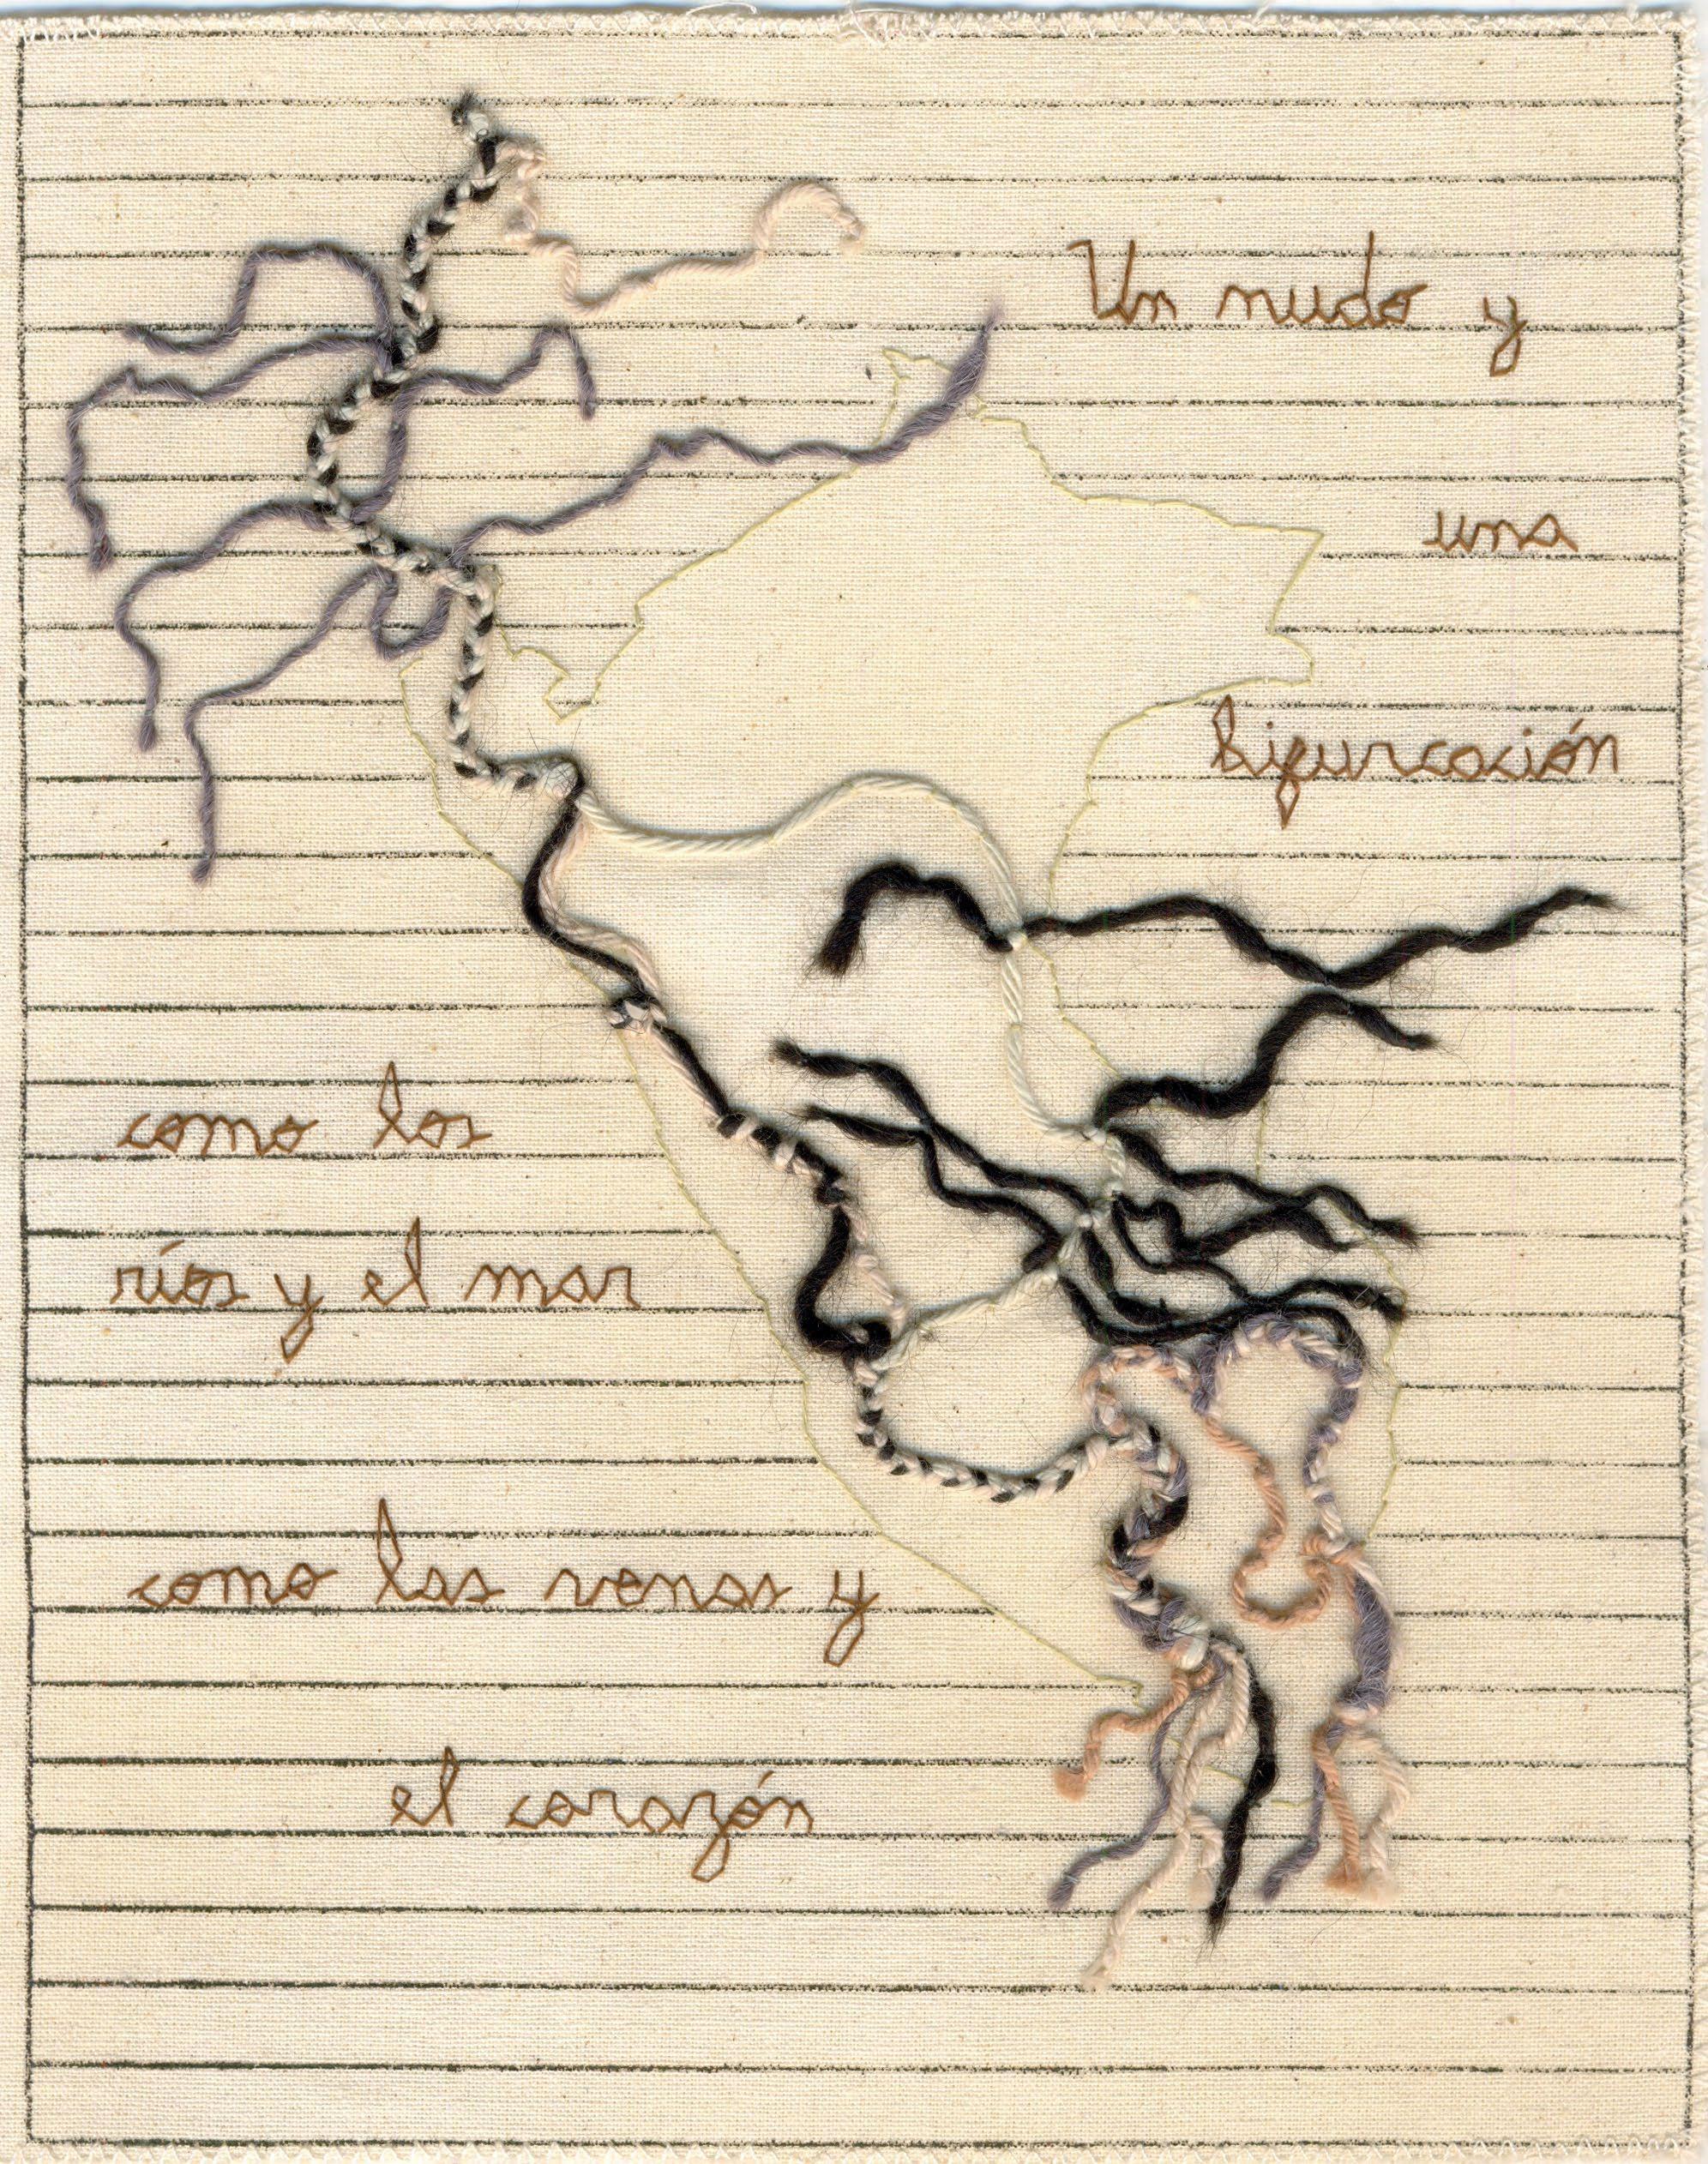 Un nudo y
una
bifurcación
como los
ríos y el mar
como las venas y
el corazón